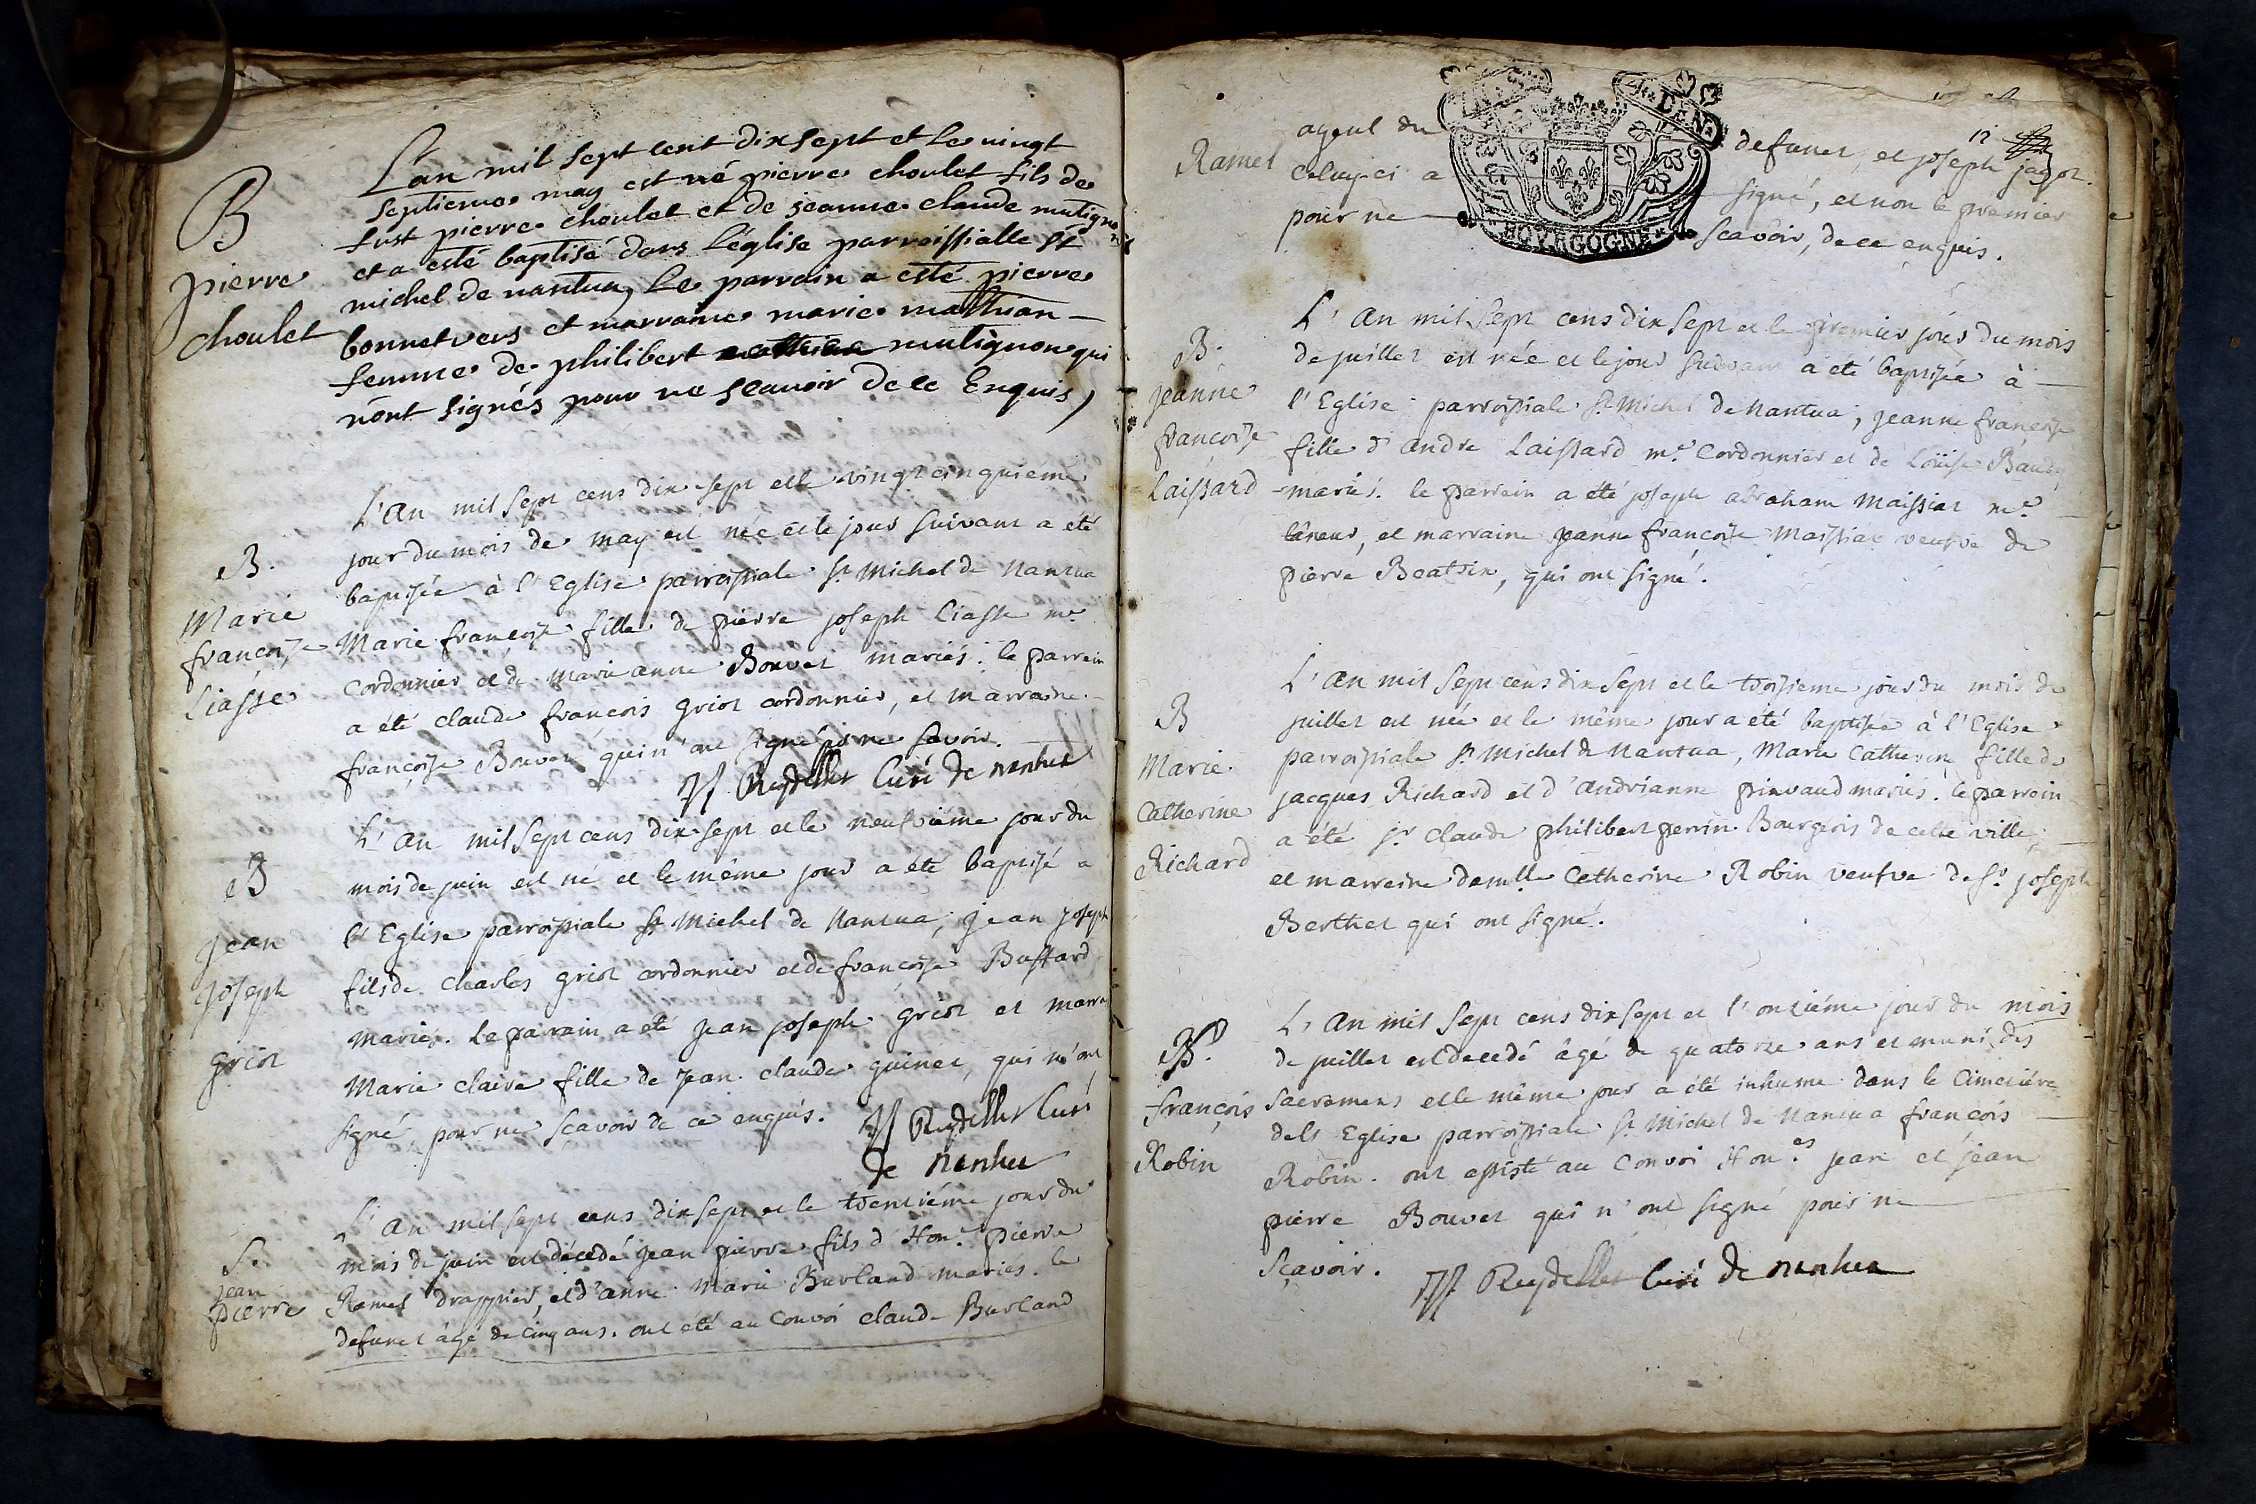 B
pierre
choulet
L'an mil sept cent dix sept et le vingt
septieme may est né pierre choulet fils de
fust pierre choulet et de jeanne claude mulignon
et a esté baptisé dans L'église parroissialle St
michel de nantua, Le parrain a esté pierre
bonnetvers et marraine marie mathian
femme de philibert mulignon qui
n'ont signés pour ne scauoir de ce Enquis,
B.
Marie
françoise
Liasse
L'An mil sept cens dix sept et le vingt cinquieme
jour du mois de may est née et le jour suivant a été
baptisée à l'Eglise parroissiale St Michel de Nantua
Marie françoise fille de pierre joseph Liasse me
cordonnier et de marie anne Bouvet mariés. le parrein
a été claude françois griot cordonnier, et marraine
françoise Bouvet qui n'ont signé pr ne savoir.
Reydellet Curé de nantua
B
jean
joseph
griot
L'An mil sept cens dix sept et le neufvieme jour du
mois de juin est né et le même jour a été baptisé a
l'Eglise parroissiale St Michel de Nantua, jean joseph
fils de charles griot cordonnier et de françoise Bussard
mariés. Le parrain a été jean joseph griot et marra
Marie claire fille de jean claude guinet, qui n'ont
signé pour ne sçavoir de ce enquis. Reydellet Curé
de nantua
S.
jean
pierre
L'An mil sept cens dix sept et le trentiéme jour du
mois de juin est décedé jean pierre fils d'Hon.e pierre
Ramel drappier, et d'anne Marie Burland mariés. le
defunct âgé de cinq ans. ont été au convoi claude Burland
Ramel
ayeul du defunct, et joseph jagot.
12
celuy-ci a signé, et non le premier
pour ne sçavoir, de ce enquis.
BOURGOGNE
B.
jeanne
françoise
Laissard
L'An mil sept cens dix sept et le premier jour du mois
de juillet est née et le jour suivant a été baptisée à
l'Eglise parroissiale St Michel de Nantua, jeanne françoise
fille d'andre Laissard me Cordonnier et de Loüise Baudy
mariés. le parrein a été joseph abraham Maissiat me
tâneur, et marraine jeanne françoise Maissiat veufve de
pierre Beatrix, qui ont signé.
B
Marie
Catherine
Richard
L'An mil sept cens dix sept et le troisieme jour du mois de
juillet est née et le même jour a été baptisée à l'Eglise
parroissiale St Michel de Nantua, Marie Catherine fille de
jacques Richard et d'andrianne pinvaud mariés. le parrein
a été sr claude philibert perrin Bourgeois de cette ville,
et marreine damlle Catherine Robin veufve de sr joseph
Berthet qui ont signé.
françois
Robin
L'An mil sept cens dix sept et l'onziéme jour du mois
de juillet est decedé âgé de quatorze ans et muni des
sacremens et le même jour a été inhume dans le Cimetiére
de lt Eglise parroissiale St Michel de Nantua françois
Robin. ont assisté au Convoi Hon.es jean et jean
pierre Bouvet qui n'ont signé pour ne
sçavoir.
Reydellet Curé de nantua